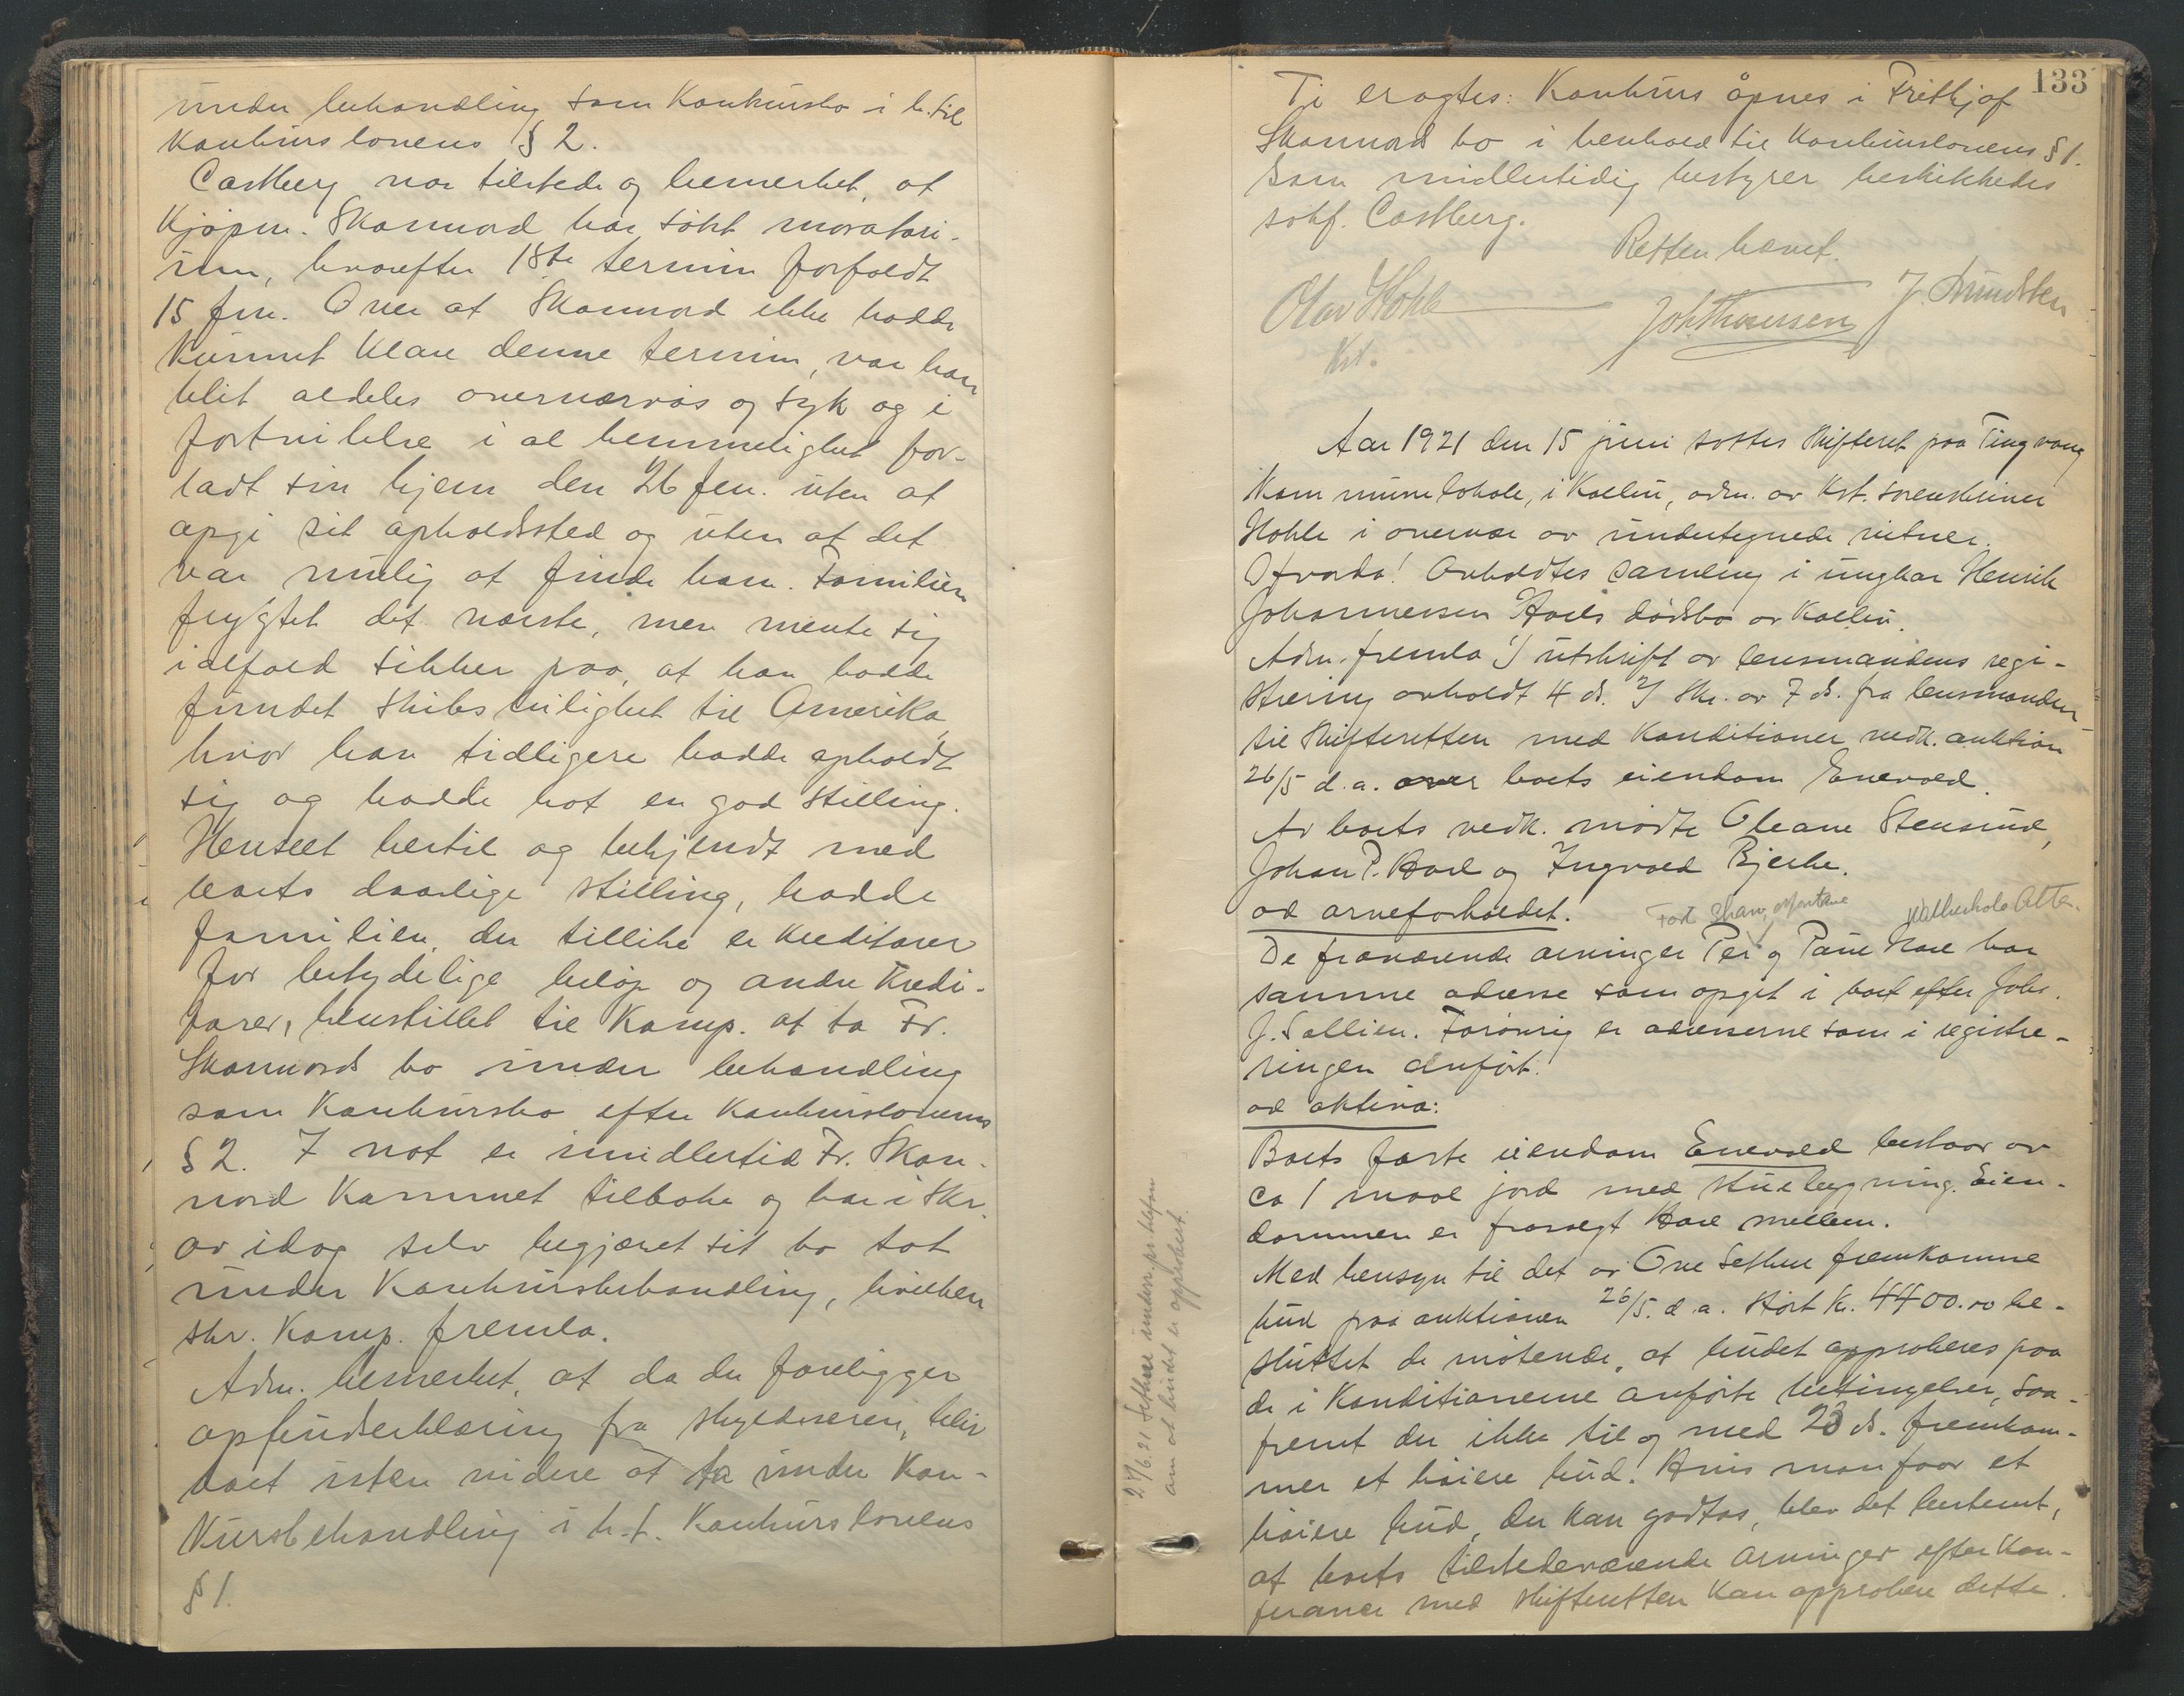 under behandling som konkursbo i h. til
konkurslovens § 2.
Castberg var tilstede og bemerket, at
kjøpm. Skannord har søkt moratori-
um, hvorefter 1ste termin forfaldt
15 f.m. Over at Skannord ikke hadde
kunnet klare denne termin, var han
blit aldeles overnervøs og syk og i
fortvilelse i al hemmelighet for-
ladt sin hjem den 26 f.m. uten at
opgi sit opholdssted og uten at det
var mulig at finde ham. Familien
frygtet det værste, men mente sig
ialfald sikker paa, at han hadde
fundet skibsleilighet til Amerika,
hvor han tidligere hadde opholdt
sig og hadde hat en god stilling.
Henseet hertil og bekjendt med
boets daarlige stilling, hadde
familien, der tillike er kreditorer
for betydelige beløp og andre kredi-
torer, henstillet til Komp. at ta Fr.
Skannords bo under behandling
som konkursbo efter konkurslovens
§ 2. I nat er imidlertid Fr. Skan-
nord kommet tilbake og har i skr.
av idag selv begjæret sit bo tat
under konkursbehandling, hvilken
skr. Komp. fremla.
Adm. bemerket, at da der foreligger
opbudserklæring fra skyldneren, blir
boet uten videre at ta under kon-
kursbehandling i h. t. konkurslovens
§ 1.
133
Ti eragtes: Konkurs åpnes i Fritkjof
Skannords bo i henhold til konkurslovens § 1.
Som midlertidig bestyrer beskikkedes
sakf. Castberg.
Retten hævet.
Olav Hohle Joh Thoresen J. Amundsen
Kst.
Aar 1921 den 15 juni sattes skifteret paa Tingvang
kommunelokale, i Kolbu, adm. av kst. sorenskriver
Hohle i overvær av undertegnede vitner.
Hvorda! Avholdtes samling i ungkar Henrik
Johannessen Hoels dødsbo av Kolbu.
Adm. fremla 1) utskrift av lensmandens regi-
strering avholdt 4 ds. 2) Skr. av 7 ds. fra lensmanden
til skifteretten med konditioner vedk. auktion
26/5 d.a. over boets eiendom Enevold.
Av boets vedk. møtte Oleane Stensrud,
Johan P. Hoel og Ingvald Bjerke.
ad arveforholdet. Fort Shaw, Montana
De fraværende arvinger Per og Paul Hoel har
samme adresse som opgit i boet efter Johs.
J. Sollien. Forøvrig er adresserne som i registre-
ringen anført.
ad aktiva:
Boets faste eiendom Enevold bestaar av
ca 1 maal jord med stuebygning. Eien-
dommen er frasolgt Hoel mellem.
Med hensyn til det av Ove Sethne fremkomne
bud paa auktionen 26/5. d.a. stort kr. 4400.00 be-
sluttet de møtende, at budet approberes paa
de i konditionerne anførte betingelser, saa-
fremt der ikke til og med 23 ds. fremkom-
mer et høiere bud. Hvis man faar et
høiere bud, der kan godtas, blev det bestemt,
at boets tilstedeværende arvinger efter kon-
ferance med skifteretten kan approbere dette.
27/6.21 Sethne underr. pr. telefon
om at budet er approbert.